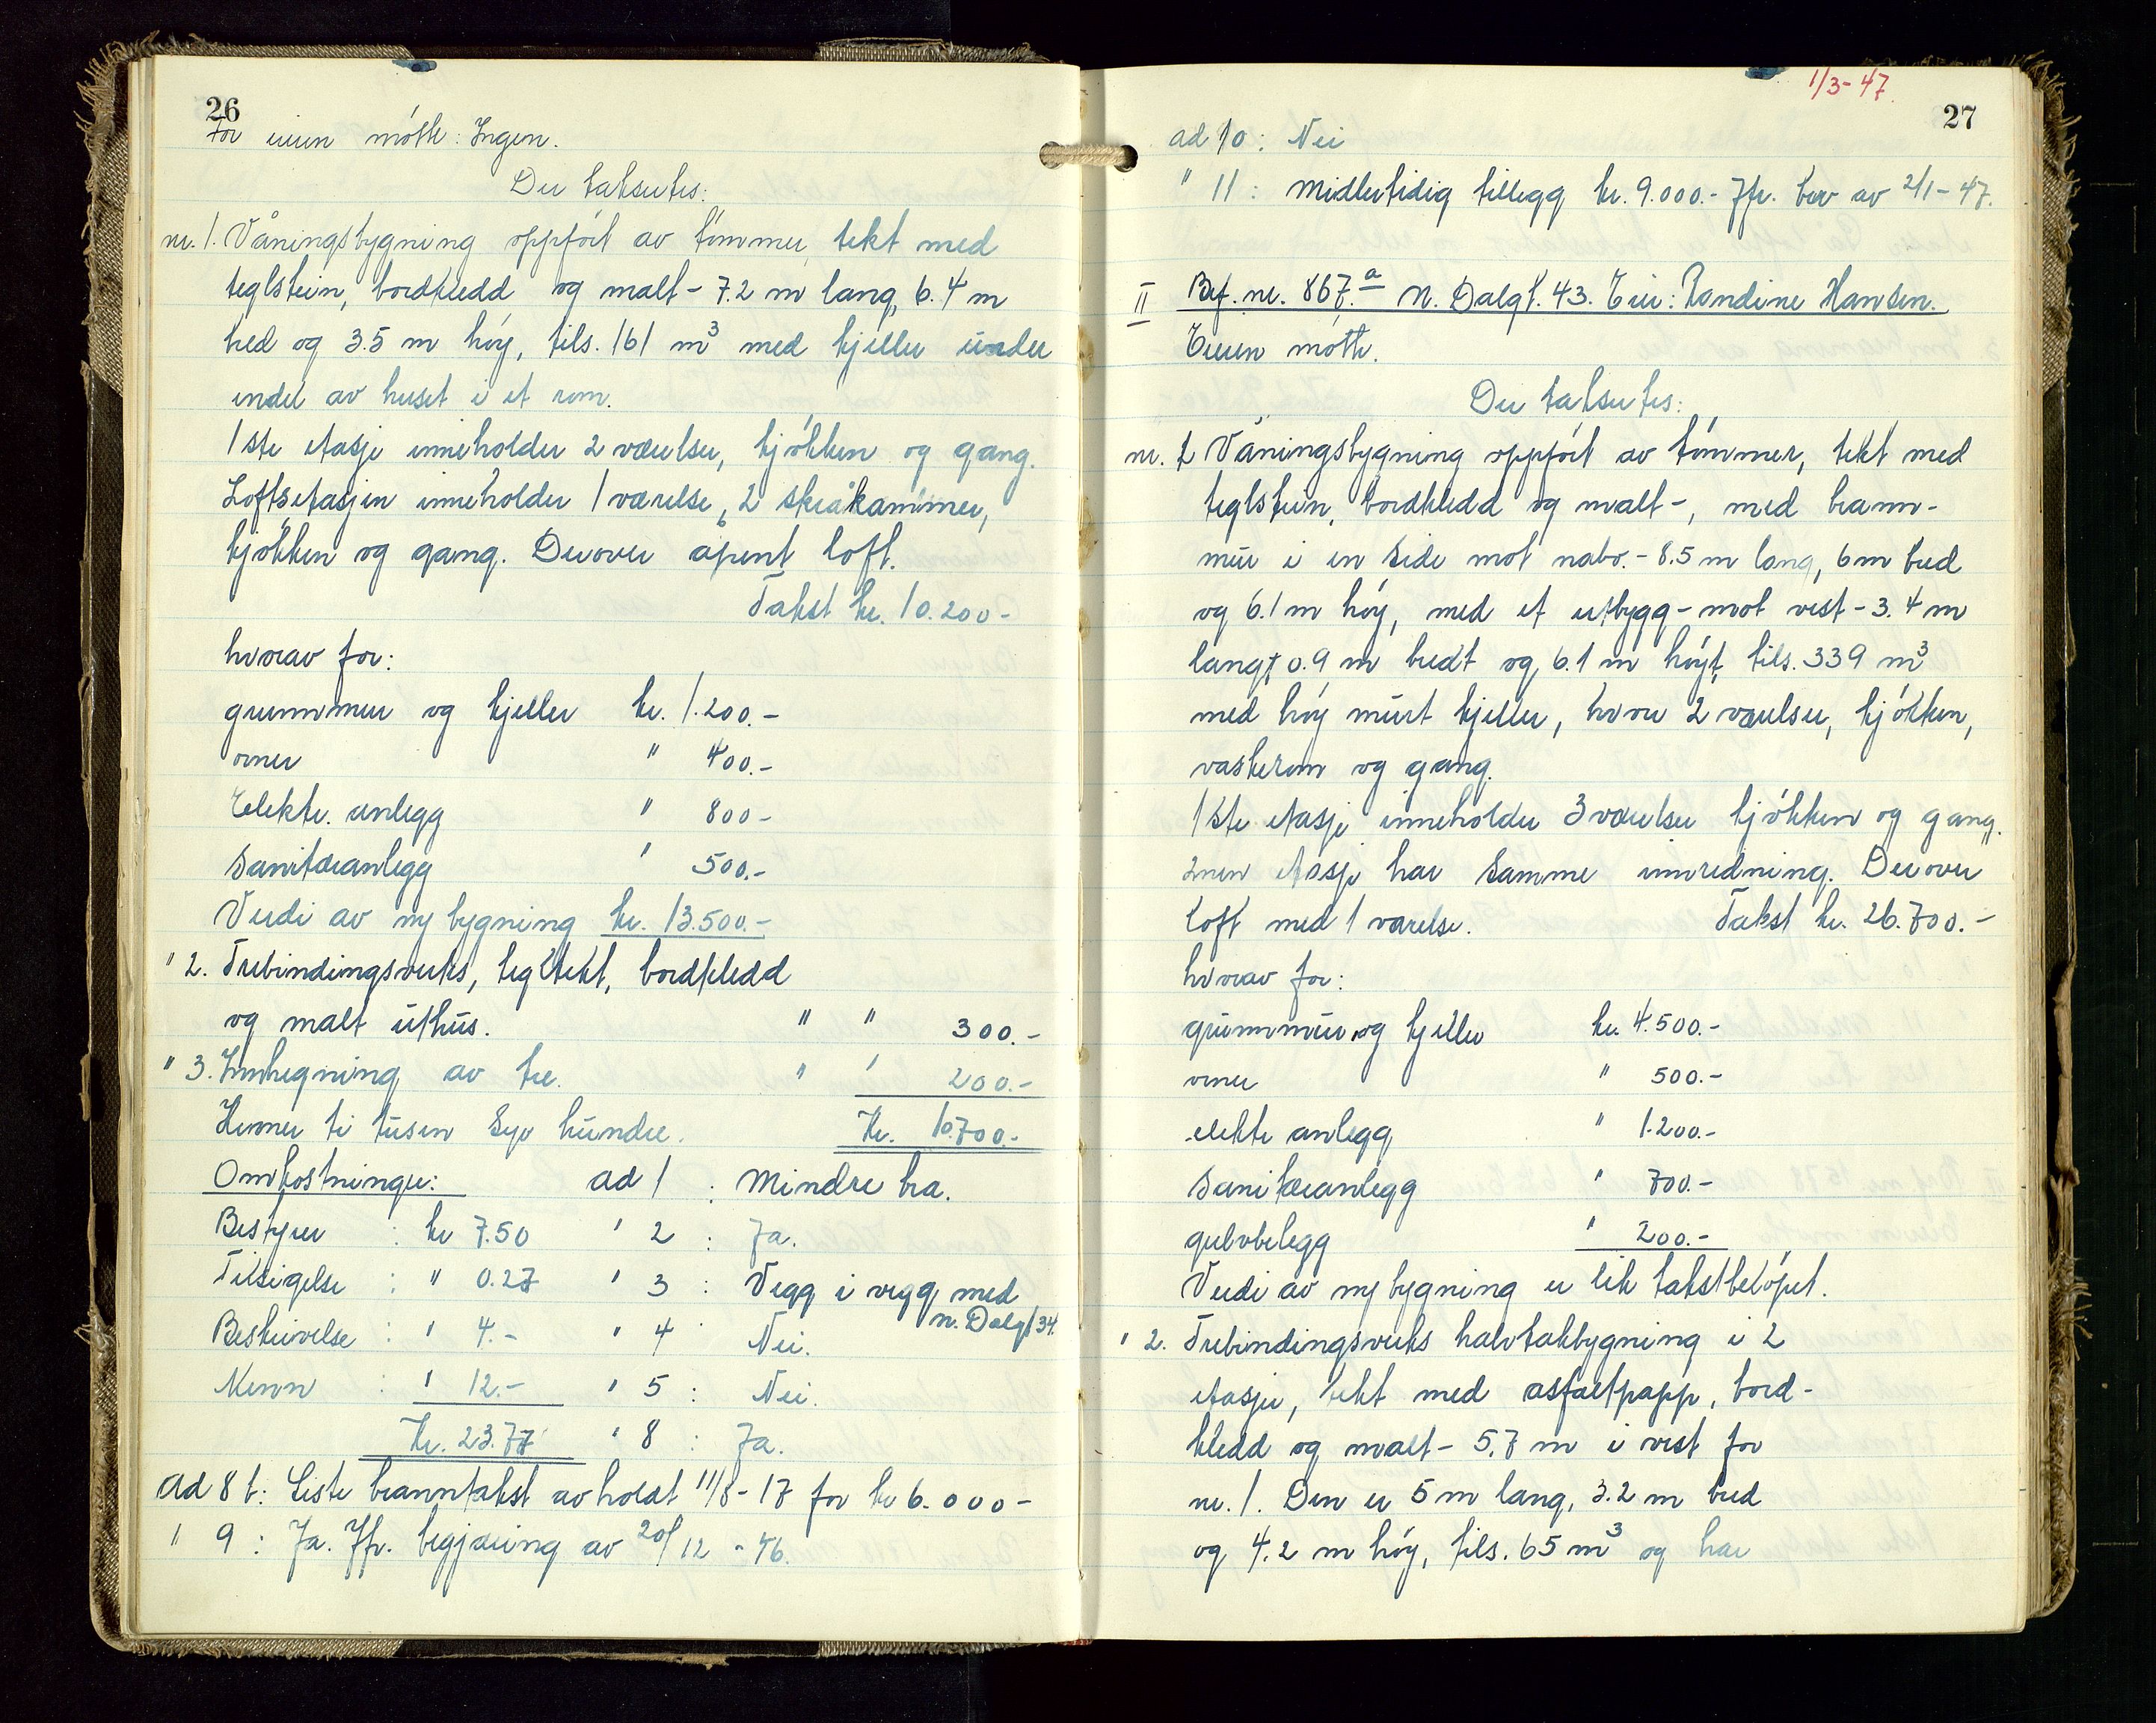 26
For eieren møtte: Ingen.
Der takseres:
nr. 1. Våningsbygning oppført av tømmer, tekt med
teglstein, bordkledd og malt - 7.2 m lang, 6.4 m
bred og 3.5 m høy, tils. 161 m³ med kjeller under
endel av huset i et rom.
1ste etasje inneholder 2 værelser, kjøkken og gang.
Loftsetasjen inneholder 1 værelse, 2 skråkammer,
kjøkken og gang. Derover åpent loft.
Takst kr. 10.200-
hvorav for:
grunnmur og kjeller kr. 1.200.-
ovner " 400.-
Elektr. anlegg " 800-
Sanitæranlegg " 500.-
Verdi av ny bygning kr. 13.500.-
" 2. Trebindingsverks, tegltekt, bordkledd
og malt uthus. " " 300.-
" 3. Innhegning av tre. " " 200.-
Kroner ti tusen syv hundre. Kr. 10.700.-
Omkostninger: ad 1 : Mindre bra.
Bestyrer : kr 7.50 " 2 : Ja.
Tilsigelse : " 0.27 " 3 : Vegg i vegg med
n. Dalgt 34.
Beskrivelse : " 4.- " 4 : Nei.
Menn : " 12.- " 5 : Nei.
Kr. 23.77 " 8 : Ja.
Ad 8 b: Siste branntakst avholdt 11/8-17 for kr 6.000-
" 9 : Ja. Jfr. begjæring av 20/12 - 46.
1/3-47.
27
ad 10 : Nei
" 11 : Midlertidig tillegg kr. 9.000.- Jfr. brev av 2/1-47.
II Brf. nr. 867.a N. Dalgt. 43. Eier: Randine Hansen.
Eieren møtte.
Der takseres:
nr. 1 Våningsbygning oppført av tømmer, tekt med
teglstein, bordkledd og malt -, med brann-
mur i en side mot nabo. - 8.5 m lang, 6 m bred
og 6.1 m høy, med et utbygg - mot vest - 3.4 m
langt, 0.9 m bredt og 6.1 m høyt, tils. 339 m³
med høy murt kjeller, hvori 2 værelser, kjøkken,
vaskerom og gang.
1ste etasje inneholder 3 værelser kjøkken og gang.
2nen etasje har samme innredning. Derover
loft med 1 værelse. Takst kr. 26.700.-
hvorav for:
grunnmur og kjeller kr. 4.500.-
ovner " 500.-
elektr anlegg " 1.200.-
Sanitæranlegg " 700.-
gulvbelegg " 200.-
Verdi av ny bygning er lik takstbeløpet.
" 2. Trebindingsverks halvtakbygning i 2
etasjer, tekt med asfaltpapp, bord-
kledd og malt - 5.7 m i vest for
nr. 1. Den er 5 m lang, 3.2 m bred
og 4.2 m høy, tils. 65 m³ og har